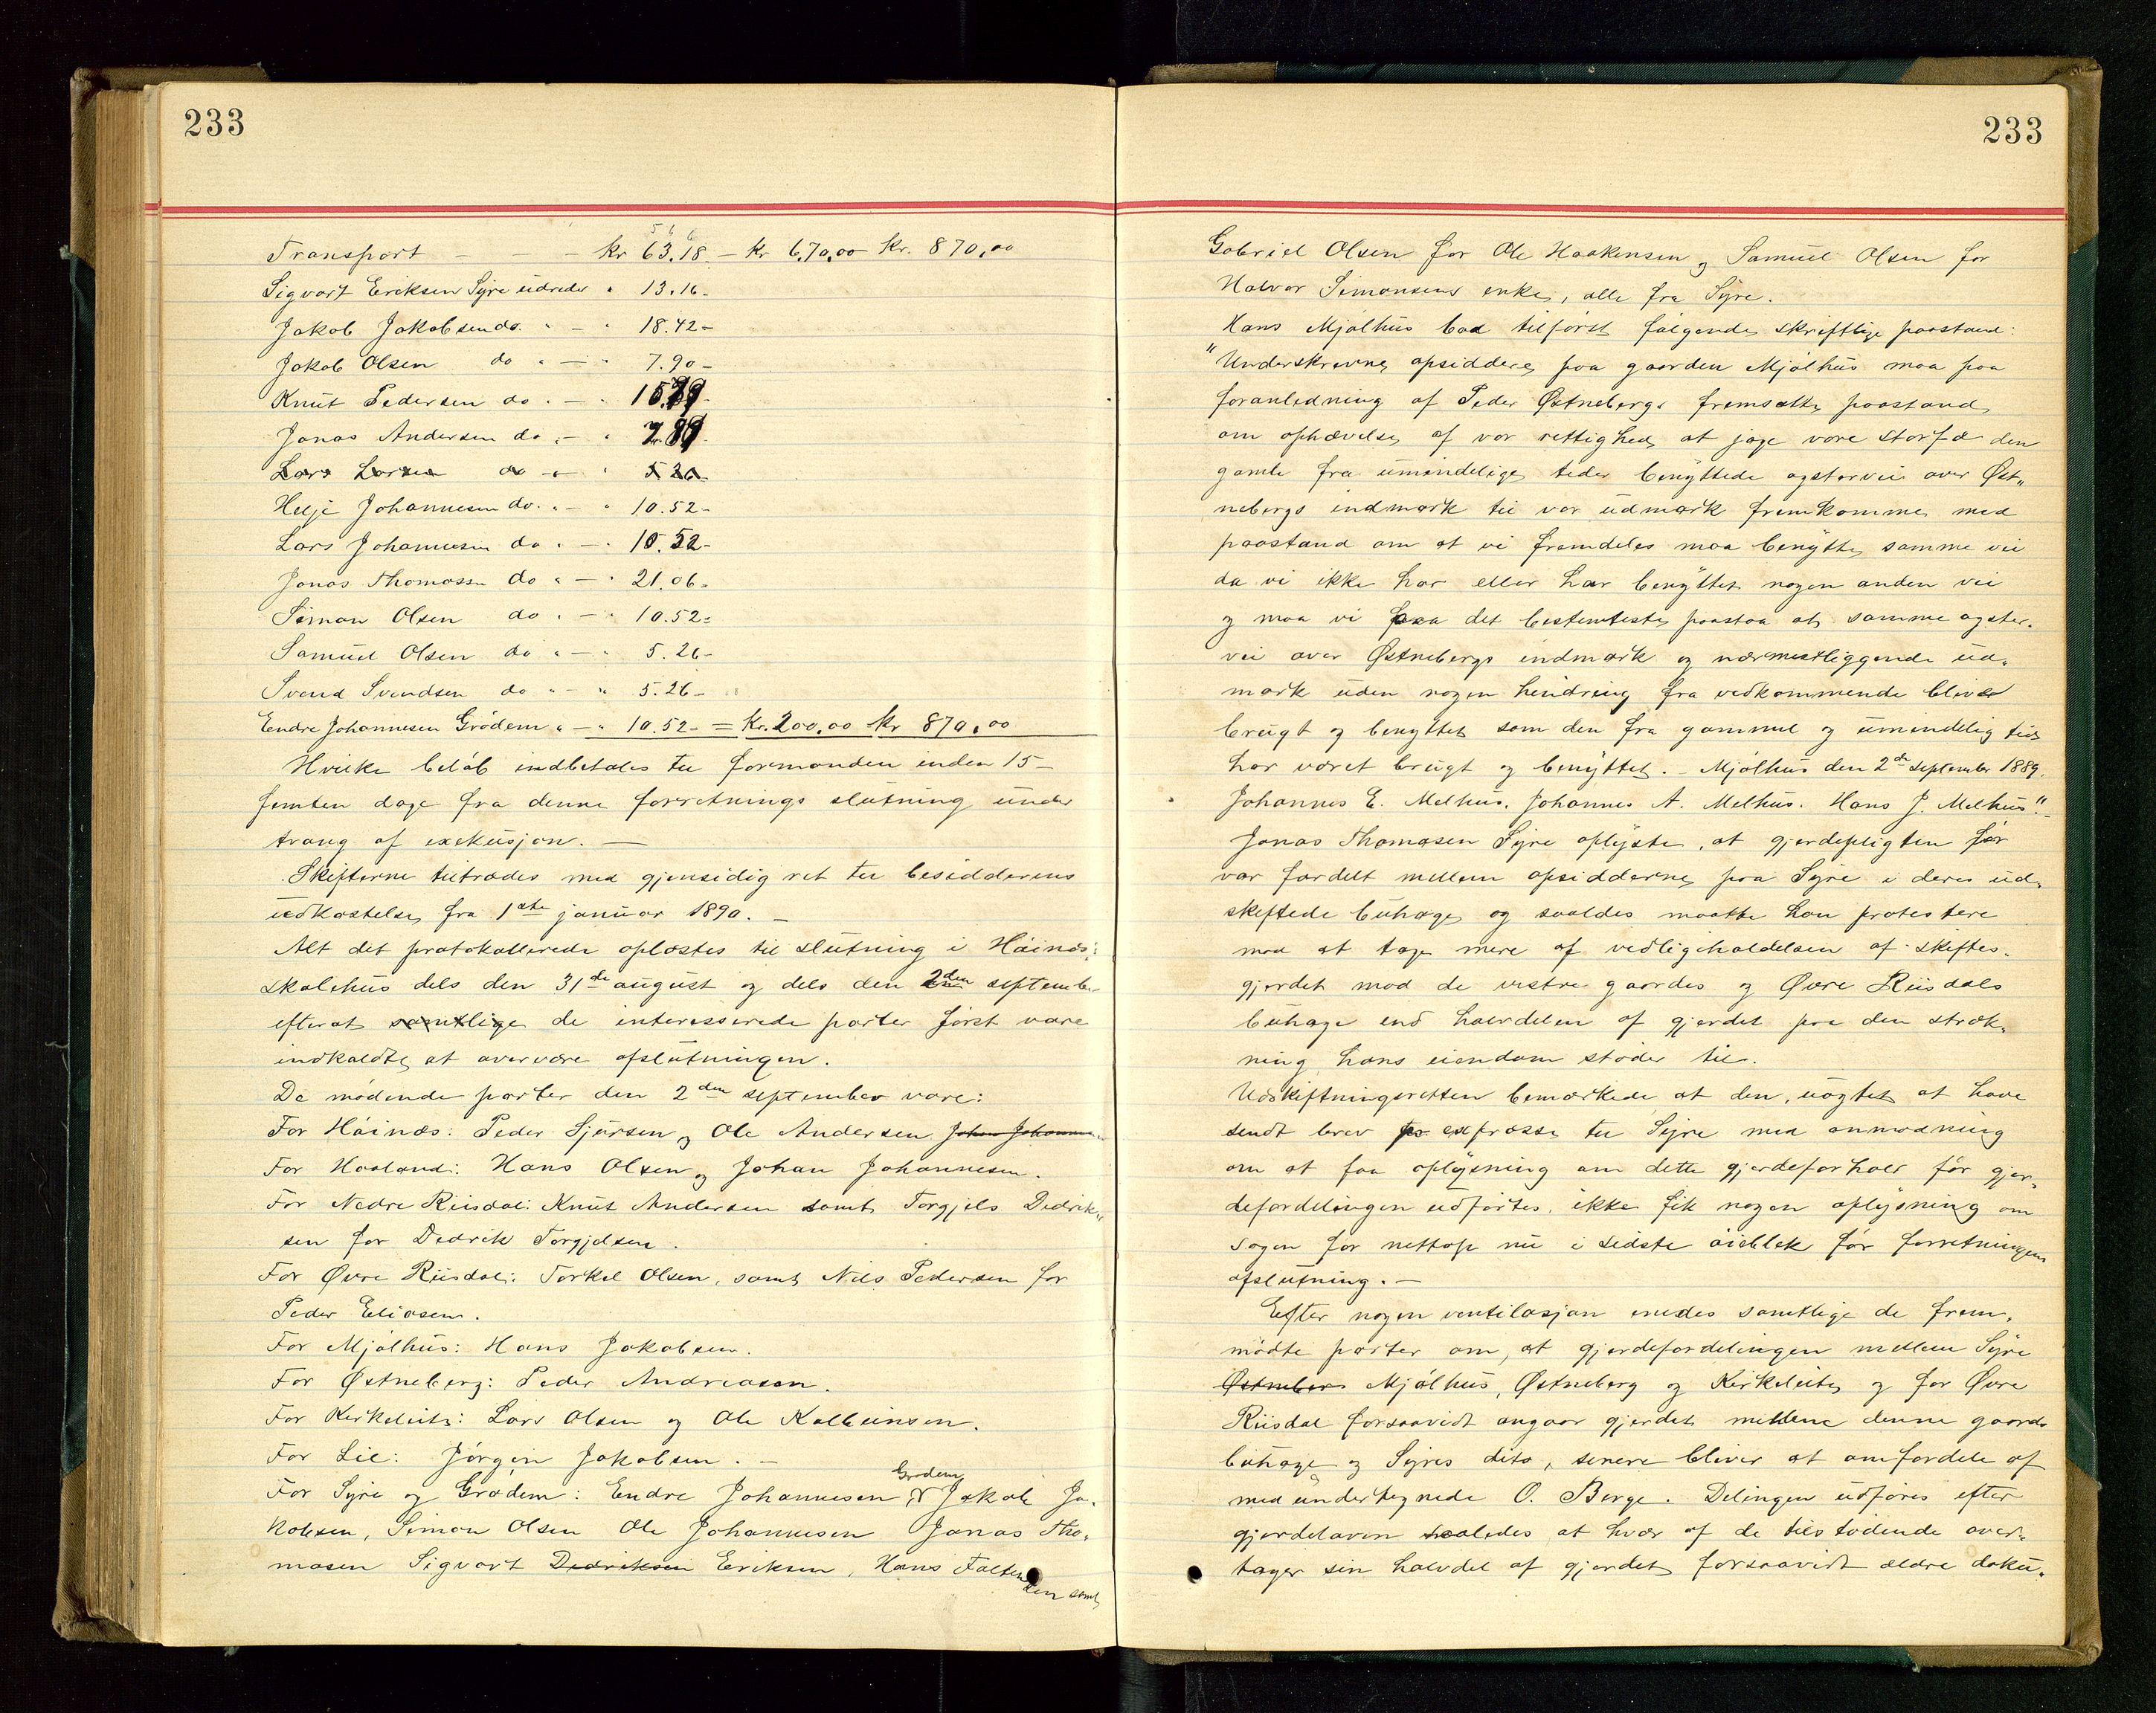 233
Transport - - - kr 63.18 - kr 670,00 kr. 870,00
Sigvart Eriksen Syre udreder " 13.16-
Jakob Jakobsen do. " - " 18.42-
Jakob Olsen do " - " 7.90-
Knut Pedersen do. -
Jonas Andersen do. - "
Lars Larsen do - " 5 26-
Helje Johannesen do. " - " 10.52-
Lars Johannesen do " - " 10.52-
Jonas Thomassen do " - " 21.06-
Simon Olsen do " - " 10.52-
Samuel Olsen do " - " 5.26-
Svend Svendsen do " - " 5.26-
Endre Johannesen Grödem " - " 10.52- = Kr. 200,00 kr 870,00
Hvilke beløb indbetales til formanden inden 15-
femten dage fra denne forretnings slutning under
tvang af exekusjon. -
Skifterne tiltrædes med gjensidig ret til besidderens
udkastelse fra 1ste januar 1890. -
Alt det protokollerede oplæstes til slutning i Håinæs
skolehus dels den 31de august og dels den 2den september
efterat samtlige de interesserede parter först vare
indkaldte at overvære afslutningen.
De mødende parter den 2den september vare:
For Håinæs: Peder Sjursen og Ole Andersen Johan Johannesen
For Haaland: Hans Olsen og Johan Johannesen.
For Nedre Riisdal: Knut Andersen samt Torgjels Dedrik-
sen for Dedrik Torgjelsen.
For Øvre Riisdal: Torkel Olsen, samt Nils Pedersen for
Peder Eliasen.
For Mjølhus: Hans Jakobsen.
For Østneberg: Peder Andreasen.
For Kirkeleite: Lars Olsen og Ole Kolbeinsen.
For Lie: Jørgen Jakobsen. -
Grødem
For Syre og Grødem: Endre Johannesen, Jakob Ja-
kobsen, Simon Olsen Ole Johannesen Jonas Tho-
masen Sigvart Dedriksen Eriksen, Hans
samt
233
Gabriel Olsen for Ole Haakensen og Samuel Olsen for
Halvor Simonsens enke, alle fra Syre.
Hans Mjølhus bad tilført følgende skriftlige paastand:
"Underskrevne opsiddere paa gaarden Mjølhus maa paa
foranledning af Peder Østnebergs fremsatte paastand
om ophævelse af vor rettighed at jage vore storfæ den
gamle fra umindelige tider benyttede agstervei over Øst-
nebergs indmark til vor udmark fremkomme med
paastand om at vi fremdeles maa benytte samme vei
da vi ikke har eller har benyttet nogen anden vei
og maa vi paa det bestemteste paastaa at samme agster-
vei over Østnebergs indmark og nærmestliggende ud-
mark uden nogen hindring fra vedkommende bliver
brugt og benyttet som den fra gammel og umindelig tid
har været brugt og benyttet. - Mjølhus den 2de september 1889.
Johannes E. Melhus. Johannes A. Melhus. Hans J. Melhus".-
Jonas Thomasen Syre oplyste, at gjerdepligten før
var fordelt mellem opsidderne paa Syre i deres ud-
skiftede buhage og saaledes maatte han protestere
mod at tage mere af vedligeholdelsen af skiftes-
gjerdet mod de vestre gaardes og Øvre Riisdals
buhage end halvdelen af gjerdet paa den stræk-
ning hans eiendom støder til.
Udskiftningsretten bemærkede at den, uagtet at have
sendt brev pr expresse til Syre med anmodning
om at faa oplysning om dette gjerdeforhold før gjer-
defordelingen udførtes, ikke fik nogen oplysning om
sagen før nettop nu i sidste øieblek før forretningens
afslutning. -
Efter nogen ventilasjon enedes samtlige de frem-
mødte parter om, at gjerdefordelingen mellem Syre
Østneberg Mjølhus, Østneberg og Kirkeleite og for Øvre
Riisdal forsaavidt angaar gjerdet mellem denne gaards
buhage og Syres dito, senere bliver at omfordele af
med undertegnede O. Berge. Delingen udføres efter
gjerdeloven saaledes at hver af de tilstødende over-
tager sin halvdel af gjerdet forsaavidt ældre doku-